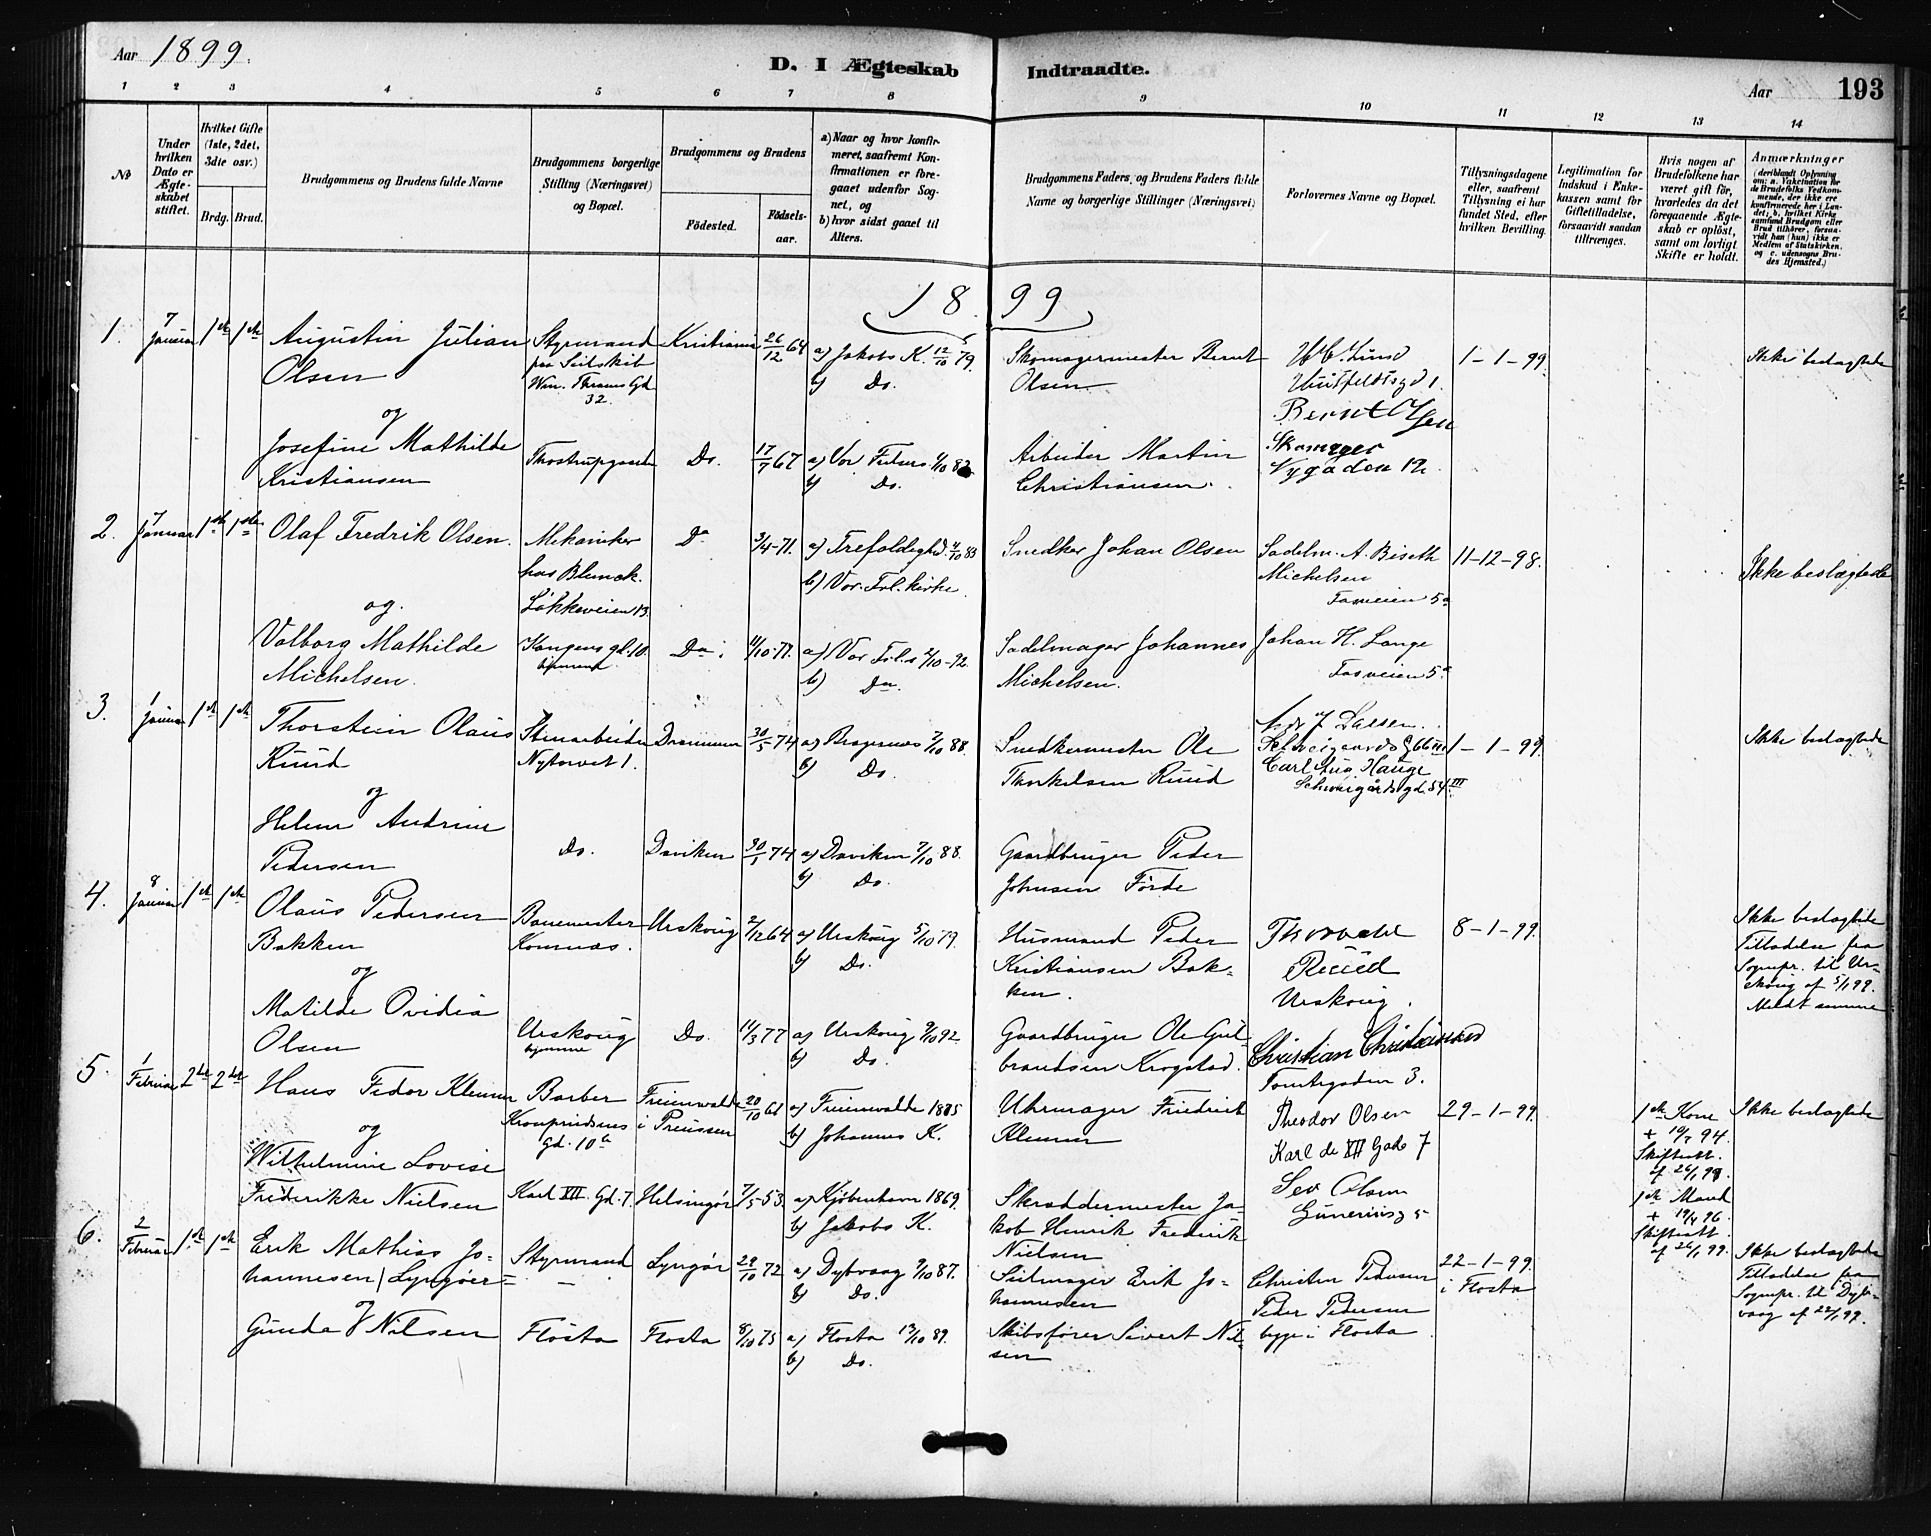 Aar 1899.
D. I Ægteskab Indtraadte.
Aar 193
1 2 3 4 5 6 7 8 9 10 11 12 13 14
No
Under hvilken Dato er Ægteskabet stiftet.
Hvilket Gifte (1ste, 2det, 3die osv.)
Brdg. Brud.
Brudgommens og Brudens fulde Navne
Brudgommens borgerlige Stilling (Næringsvei) og Bopæl.
Brudgommens og Brudens
Fødested.
Fødselsaar.
a) Naar og hvor konfirmeret, saafremt Konfirmationen er foregaaet udenfor Sognet, og
b) hvor sidst gaaet til Alters.
Brudgommens Faders, og Brudens Faders fulde Navne og borgerlige Stillinger (Næringsvei)
Forlovernes Navne og Bopæl.
Tillysningsdagene eller, saafremt Tillysning ei har fundet Sted, efter hvilken Bevilling.
Legitimation for Indskud i Enkekassen samt for Giftetilladelse, forsaavidt saadan tiltrænges.
Hvis nogen af Brudefolkene har været gift før, hvorledes da det foregaaende Ægteskab er opløst, samt om lovligt Skifte er holdt.
Anmærkninger (deriblandt Oplysning om: a. Vakcination for de Brudefolks Vedkommende, der ikke ere konfirmerede her i Landet; b. hvilket Kirkesamfund Brudgom eller Brud tilhører, forsaavidt han (hun) ikke er Medlem af Statskirken, og c. udensogns Brudes Hjemsted.)
1899
1. 7 Januar 1ste 1ste
Augustin Julian Olsen
Styrmand paa Seilskib Wm. Thranes Gd 32.
Kristiania 26/12 64
a) Jakobs K. 12/10 79.
b) Do.
Skomagermester Bernt Olsen
Huitfeldtsgd 1.
Bernt Olsen
Skomager
Nygaden 12
1-1-99.
Ikke beslægtede
og
Josefine Mathilde Kristiansen
Do. 17/7 67
a) Vor Frelsers
b) Do.
Arbeider Martin Christiansen.
2. 7 Januar 1ste 1ste
Olaf Fredrik Olsen.
Mekaniker hos Blunck. Løkkeveien 13.
Do 3/4-71.
a) Trefoldighd. 4/10 83
b) Vor. Frl. kirke
Snedker Johan Olsen
Sadelm. A. Biseth Michelsen
Fosveien 5a
11-12-98.
Ikke beslægtede
og.
Valborg Mathilde Michelsen.
Kongens gd. 10. hjemme
Do. 11/10-77.
a) Vor Frls 2/10-92
b) Do.
Sadelmager Johannes Michelsen.
Johan H. Lange
Fosveien 5a
3. 1 Januar 1ste 1ste
Thorstein Olaus Ruud
Stenarbeider Nytorvet 1.
Drammen 30/5 74
a) Bragernes 7/10 88.
b) Do.
Snedkermester Ole Thorkelsen Ruud
Larsen.
Schweigaards G 66 III
Carl Aug. Hauge
Schweigårds gd. 54 III
1-1-99.
Ikke beslægtede
og
Helene Andrine Pedersen
Do. Daviken 30/1 74
a) Daviken 7/10 88.
b) Do.
Gaardbruger Peder Johnsen Førde
4. 8 Januar 1ste 1ste
Olaus Pedersen Bakken
Banemester Kornæs.
Urskoug 2/12 64
a) Urskoug 5/10 79.
b) Do.
Husmand Peder Kristiansen Bakken.
Thorvald Ruud
Urskoug.
8-1-99.
Ikke beslægtede
Tilladelse fra Sognepr. til Urskoug af 5/1 99.
Meldt samme
og
Matilde Ovidia Olsen
Urskoug hjemme
Do. 11/3 77
a) Urskoug 9/10 92.
b) Do.
Gaardbruger Ole Gulbrandsen Krogstad.
Christian Christiansen
Tomtegaden 3.
5. 1 Februar 2det 2det
Hans Fedor Klemm
Barber Kronprindsens Gd. 10b
Freienwalde i Preussen 20/10 61
a) Freienwalde 1875
b) Johannes K.
Uhrmager Friedrich Klemm
Theodor Olsen
Karl de XII Gade 7
29-1-99.
1ste Kone + 10/7 94.
Skifteatt. af 26/1 99.
Ikke beslægtede
og
Wilhelmine Lovise Frederikke Nielsen
Karl XII. Gd. 7.
Helsingør 7/5-53.
a) Kjøbenhavn 1869.
b) Jakobs K.
Skræddermester Jakob Henrik Frederik Nielsen
Sev Olsen
Gunerusg 5
1ste Mand + 19/4 96.
Skifteatt. af 26/1 99.
6. 2 Februar 1ste 1ste
Erik Mathias Johannesen / Lyngøer
Styrmand
Lyngør 29/10 72
a) Dybvaag 9/10 87.
b) Do.
Seilmager Erik Johannesen
Christen Pedersen
Peder Pedersen
begge i Flosta
22-1-99. i Flosta
Ikke beslægtede
Tilladelse fra Sognepr. til Dybvaag af 22/1 99.
og
Gunda Nilsen
Flosta Flosta 8/10 75
a) Flosta 13/10 89.
b) Do.
Skibsfører Sivert Nilsen